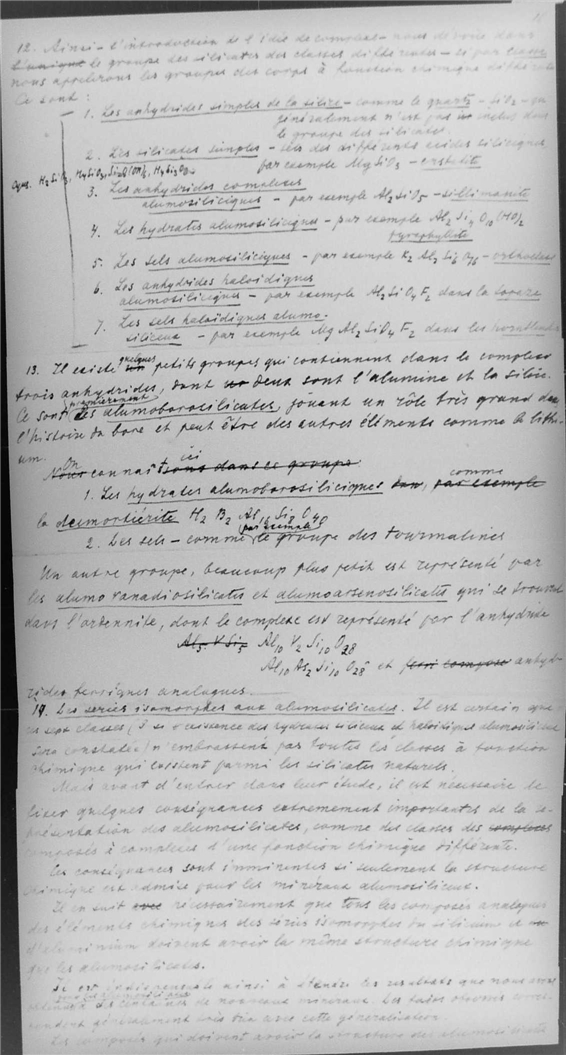 12. Ainsi – l'introduction de l'idée de complexe – nous dévoile dans
le groupe des silicates des classes différentes – et par classe
nous appelerons les groupes des corps à fonction chimique différente
Ce sont :
1. Les anhydrides simples de la silice – comme le quartz – SiO2 – qui
généralement n'est pas inclus dans
le groupe des silicates.
2. Les silicates simples – sels des différents acides siliciques
par exemple MgSiO3 – enstatite
3. Les anhydrides complexes
alumosiliciques – par exemple Al2SiO5 – sillimanite
4. Les hydrates alumosiliciques – par exemple Al2Si4O10(HO)2
pyrophyllite
5. Les sels alumosiliciques – par exemple K2Al2Si6O16 – orthoclase
6. Les anhydrides haloidiques
alumosiliciques – par exemple Al2SiO4F2 dans la topaze
7. Les sels haloidiques alumo-
siliceux – par exemple MgAl2SiO4F2 dans les hornblendes
13. Il existe quelques petits groupes qui contiennent dans le complexe
trois anhydrides, dont deux sont l'alumine et la silice.
Ce sont premièrement les alumoborosilicates, jouant un rôle très grand dans
l'histoire du bore et peut être des autres éléments comme le lithi-
um.
On connaît ici
1. Les hydrates alumoborosiliciques comme
la dumortiérite H2 B2 Al16 Si6 O40
2. Les sels – comme par exemple le groupe des tourmalines
Un autre groupe, beaucoup plus petit est représenté par
les alumovanadiosilicates et alumoarsenosilicates qui se trouvent
dans l'ardennite, dont le complexe est représenté par l'anhydride
Al10 V2 Si10 O28
Al10 As2 Si10 O28 et anhyd-
rides ferriques analogues.
14. Les series isomorphes aux alumosilicates. Il est certain que
ces sept classes (si l'existence des hydrates siliceux et haloidiques alumosiliceux
sera constatée) n'embrassent pas toutes les classes à fonction
chimique qui existent parmi les silicates naturels.
Mais avant d'entrer dans leur étude, il est nécessaire de
fixer quelques conséquences extremement importantes de la re-
présentation des alumosilicates, comme des classes des
composés à complexes d'une fonction chimique différente.
Ces conséquences sont imminentes si seulement la structure
chimique est admise pour les minéraux alumosiliceux.
Il en suit nécessairement que tous les composés analogues
des éléments chimiques des séries isomorphes du silicium et
d'aluminium doivent avoir la même structure chimique
que les alumosilicates.
Il est indispensable ainsi à étendre les résultats que nous avons
obtenus sur les alumosilicates de nouveaux minéraux. Les faits observés corres-
pondent généralement très bien avec cette généralisation.
Les composés qui doivent avoir la structure des alumosilicates